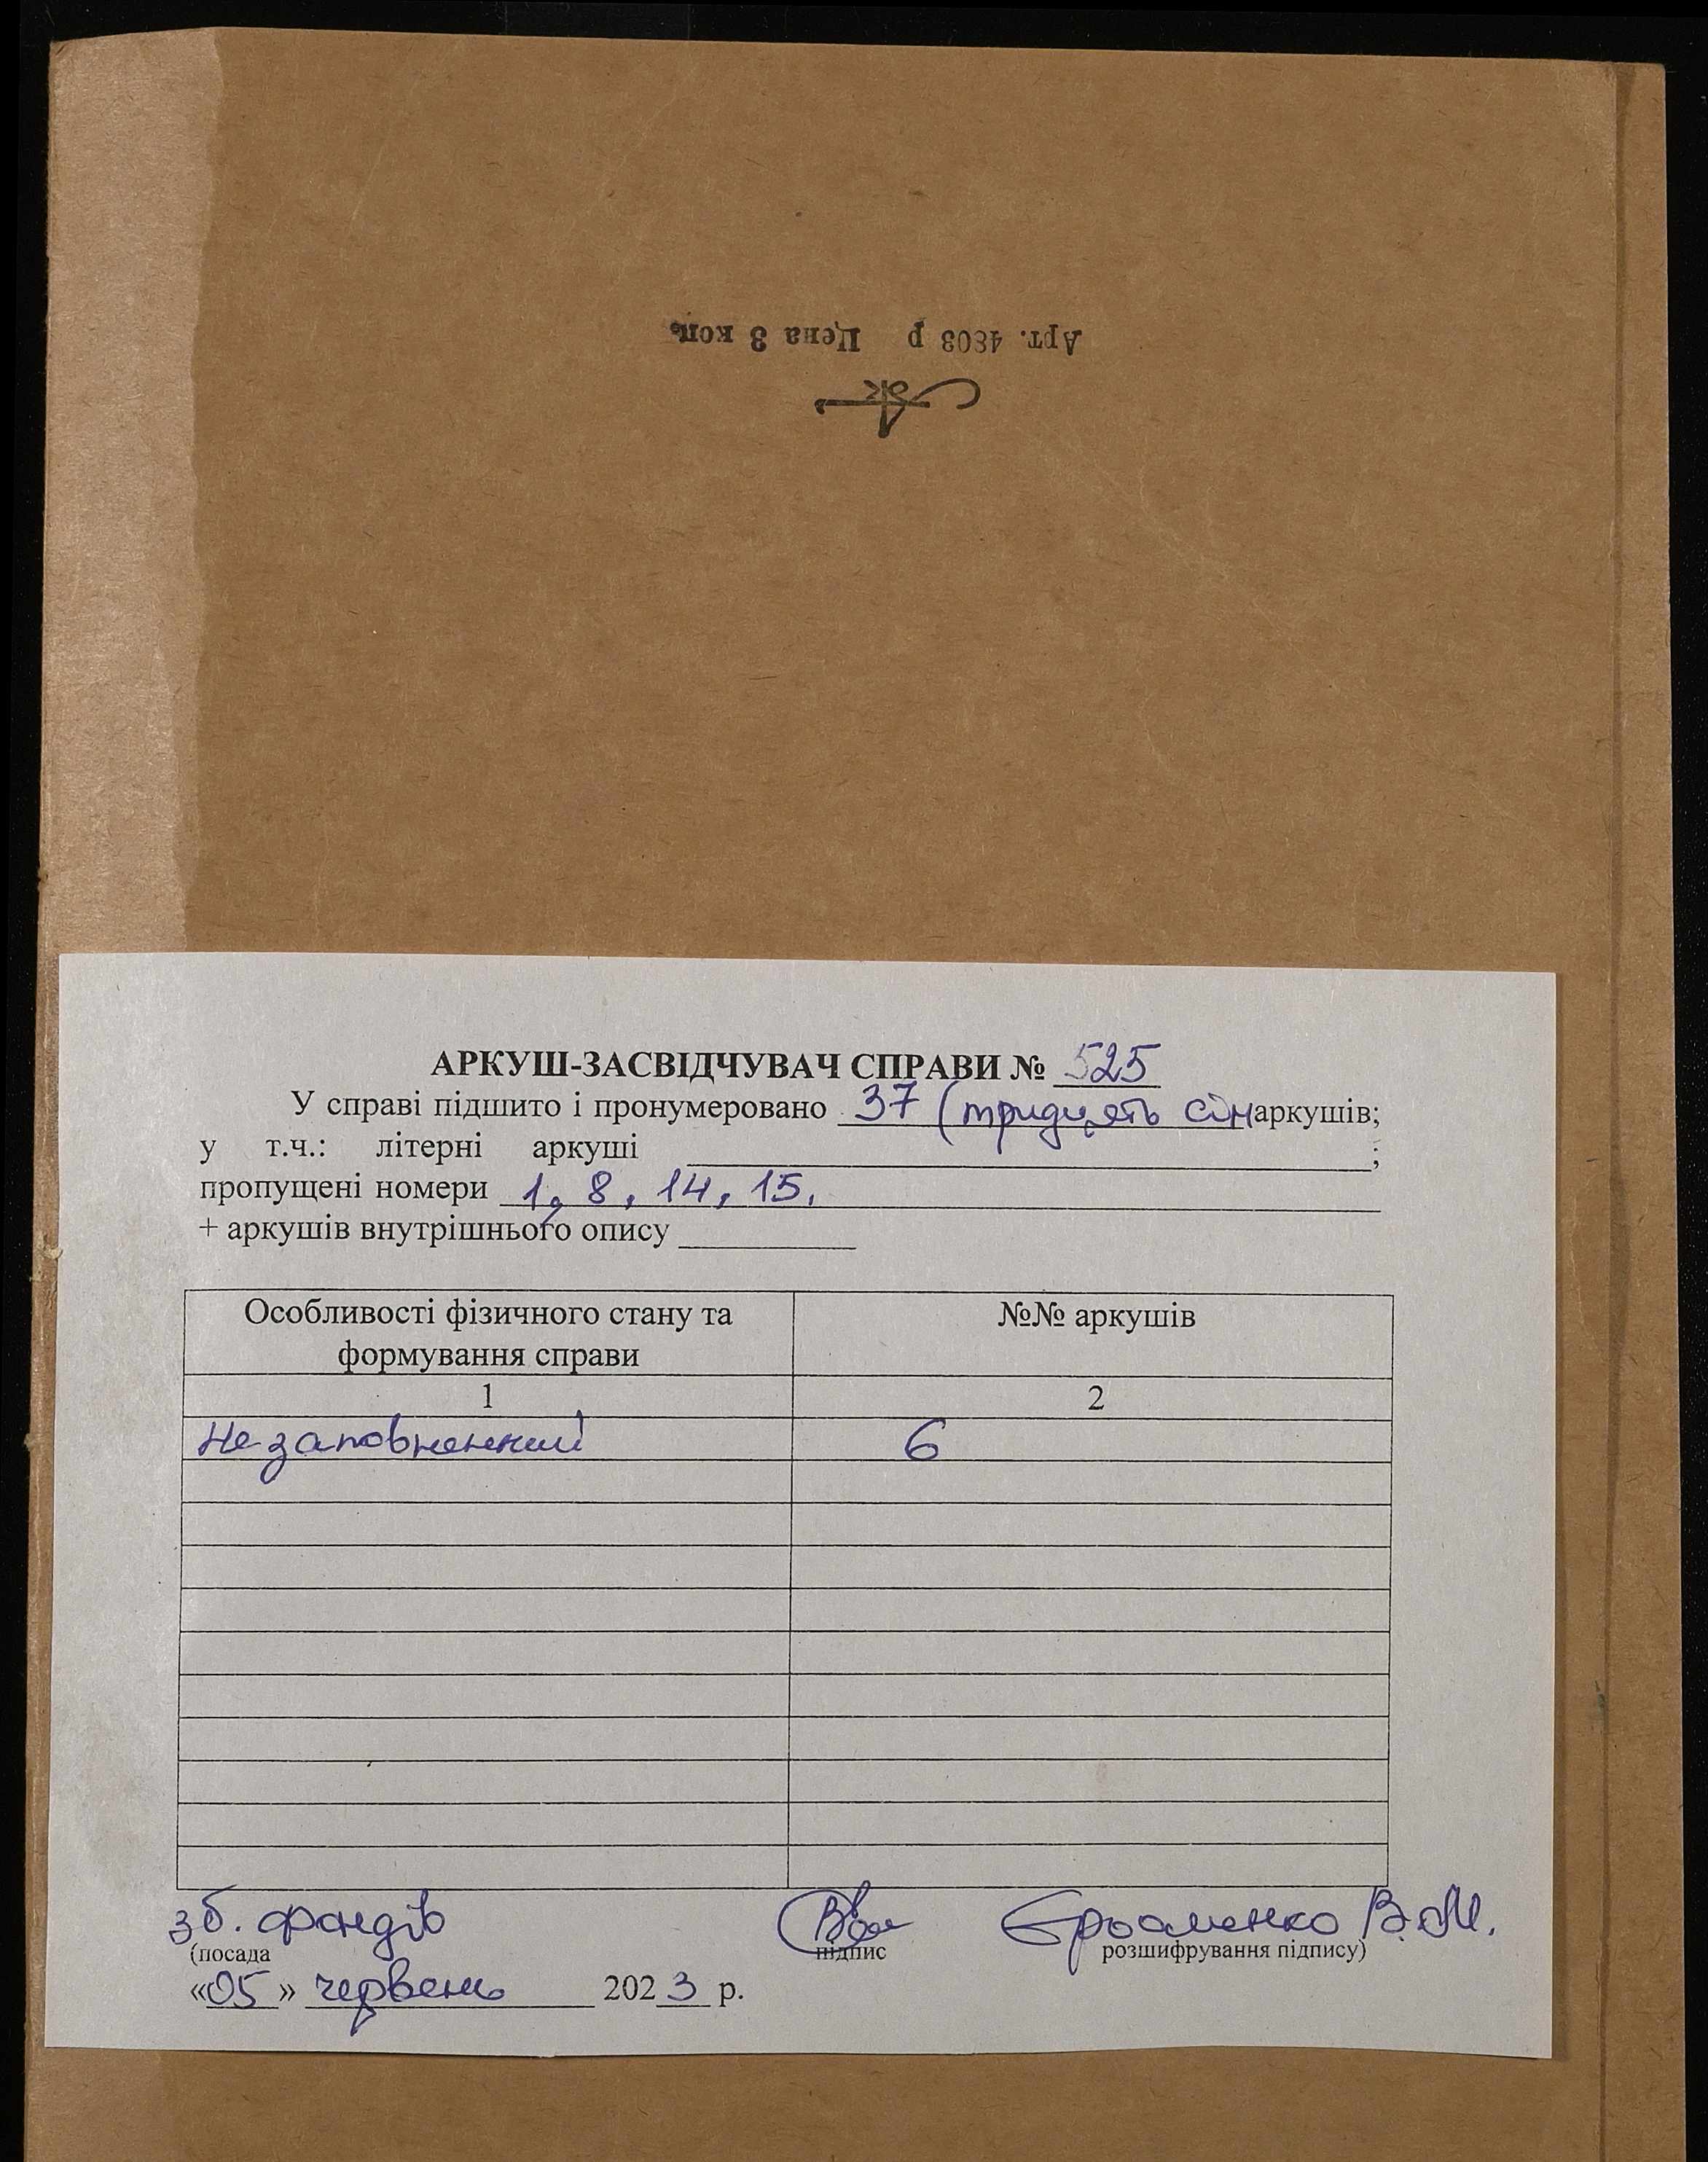 Арт. 4803 р Цена 3 коп.
АРКУШ-ЗАСВІДЧУВАЧ СПРАВИ № 525
У справі підшито і пронумеровано 37 (тридцять сім аркушів;
у т.ч.: літерні аркуші ;
пропущені номери 1, 8, 14, 15.
+ аркушів внутрішнього опису
Особливості фізичного стану та формування справи №№ аркушів
1 2
Не заповненний 6
зб. фондів Єрьоменко В.М.
(посада підпис розшифрування підпису)
«05» червень 2023 р.